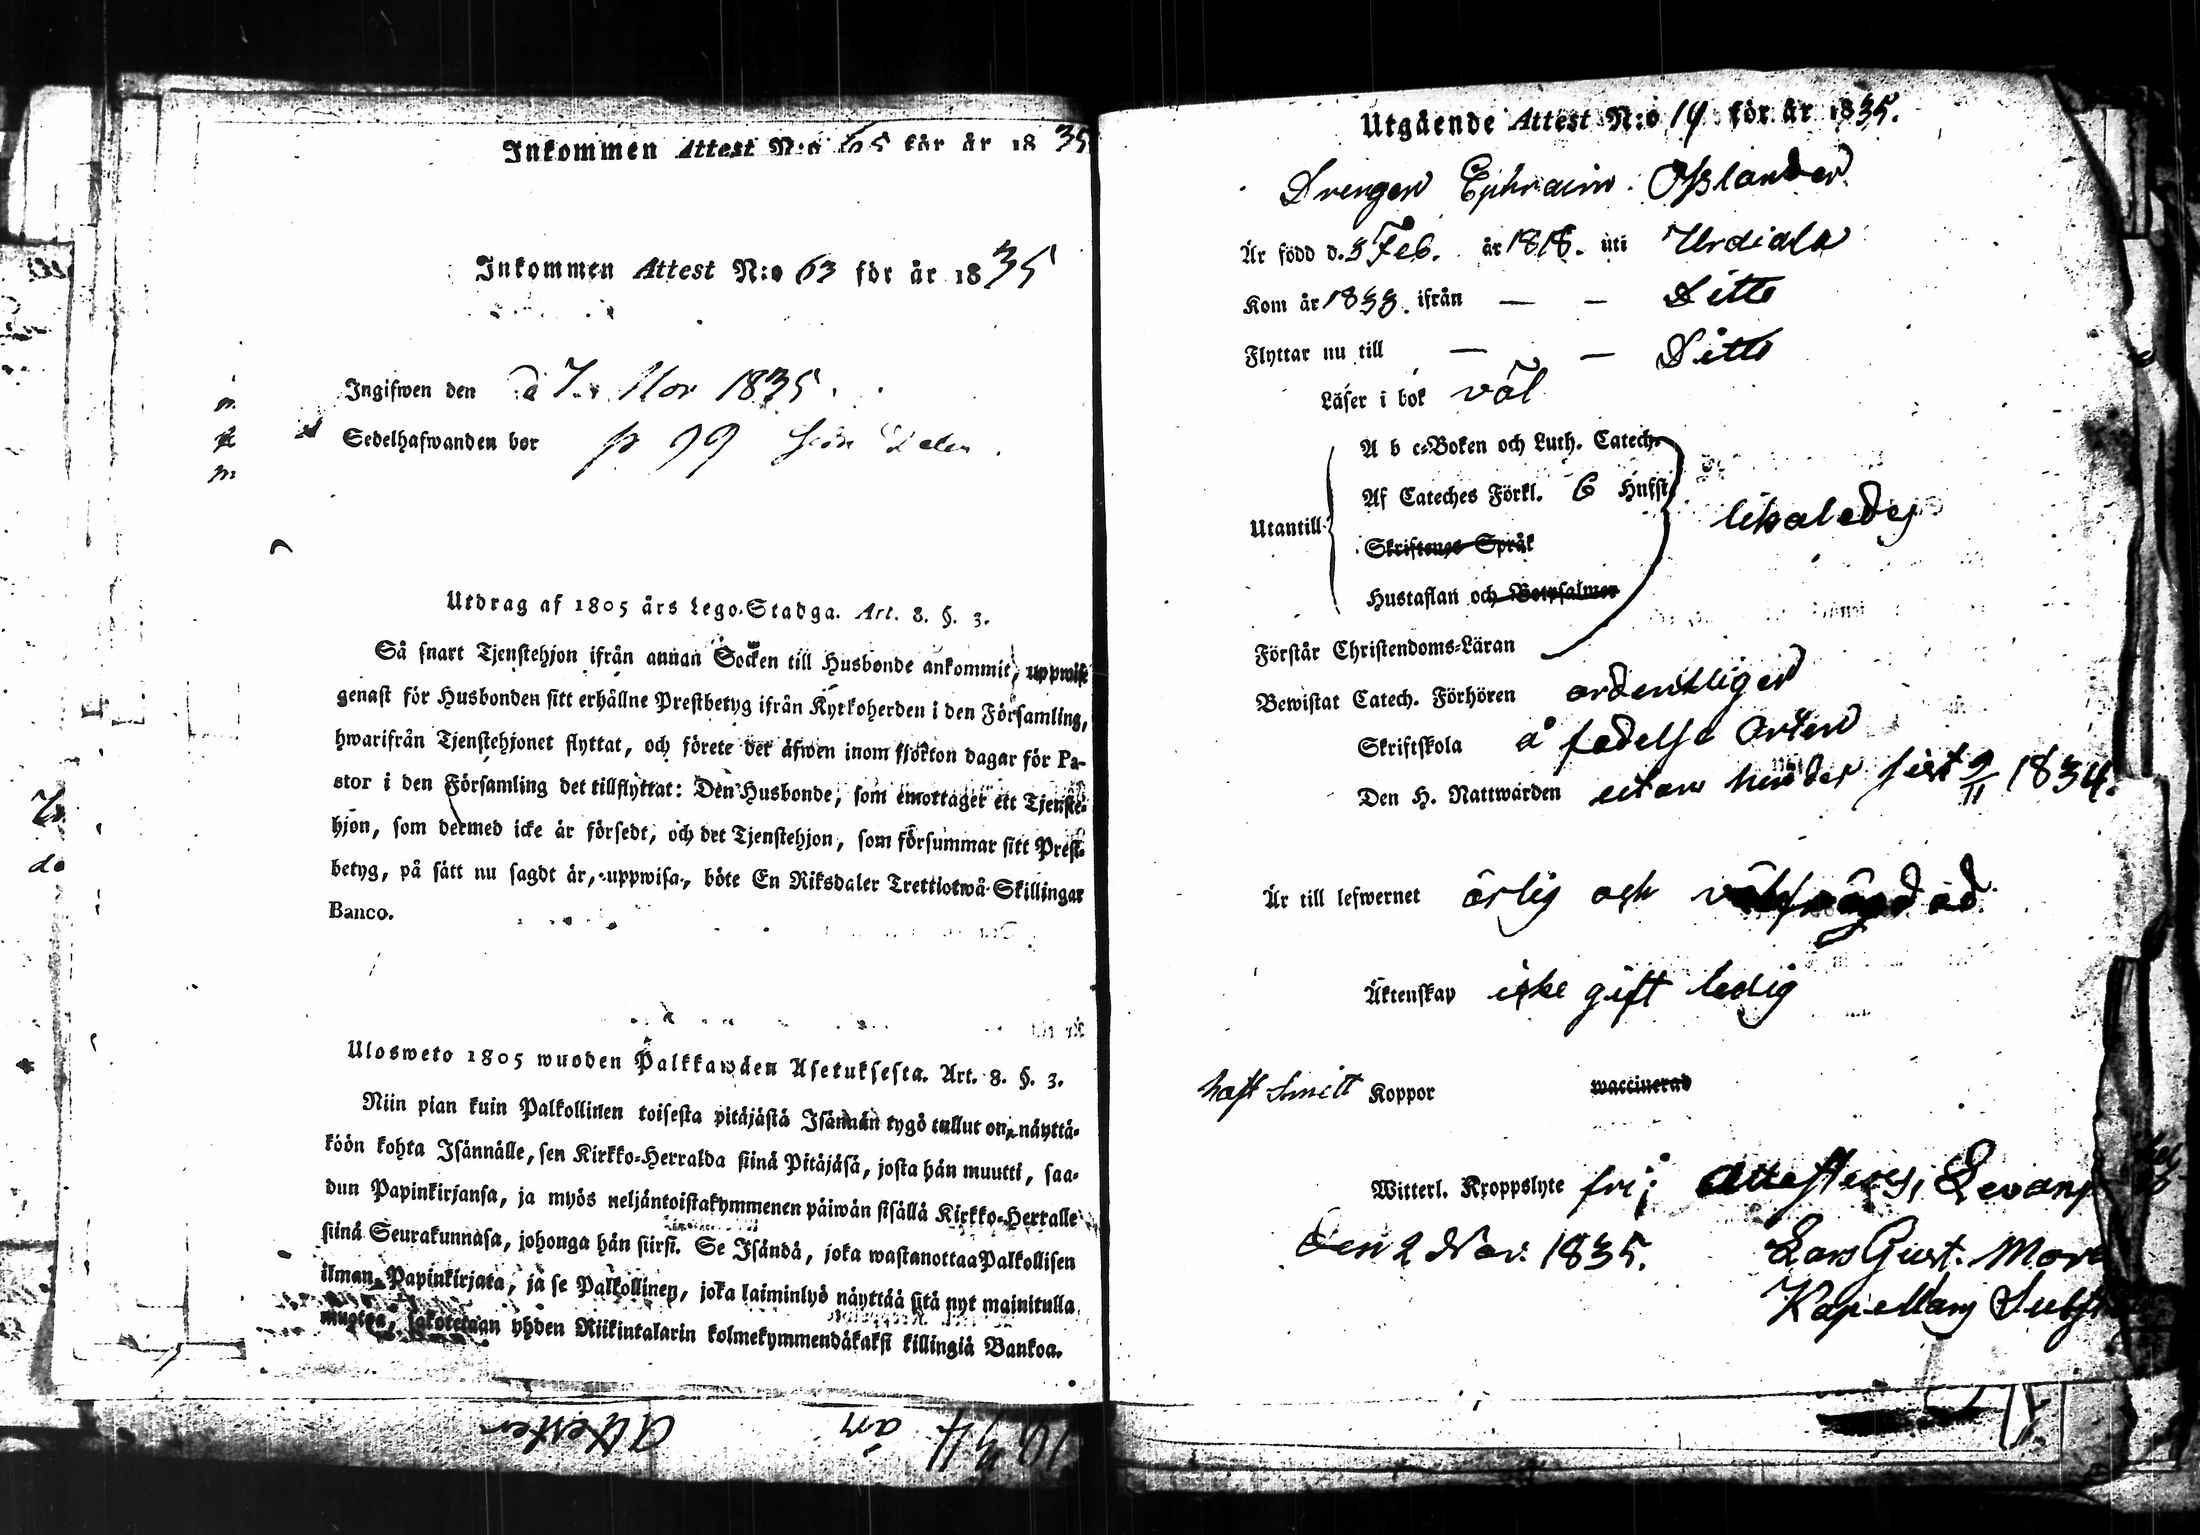 Inkommen Attest N:o 65 för år 1835
Inkommen Attest N:o 63 för år 1835
Ingifwen den d 7 Nov 1835.
Sedelhafwanden bor p 99
Utdrag af 1805 års Lego-Stadga. Art. 8. §. 3.
Så snart Tjenstehjon ifrån annan Socken till Husbonde ankommit, uppwise
genast för Husbonden sitt erhållne Prestbetyg ifrån Kyrkoherden i den Församling,
hwarifrån Tjenstehjonet flyttat, och förete det äfwen inom fjorton dagar för Pa-
stor i den Församling det tillflyttat: Den Husbonde, som emottager ett Tjenste-
hjon, som dermed icke är försedt, och det Tjenstehjon, som försummar sitt Prest-
betyg, på sätt nu sagdt är, uppwisa, böte En Riksdaler Trettiotwå Skillingar
Banco.
Ulosweto 1805 wuoden Palkkawäen Asetuksesta. Art. 8. §. 3.
Niin pian kuin Palkollinen toisesta pitäjästä Isännän tygö tullut on, näyttä-
köön kohta Isännälle, sen Kirkko-Herralda siinä Pitäjäsä, josta hän muutti, saa-
dun Papinkirjansa, ja myös neljäntoistakymmenen päiwän sisällä Kirkko-Herralle
siinä Seurakunnasa, johonga hän siirsi. Se Isändä, joka wastanottaa Palkollisen
ilman Papinkirjata, ja se Palkollinen, joka laiminlyö näyttää sitä nyt mainitulla
muotoa, sakotetaan yhden Riikintalarin kolmekymmendäkaksi killingiä Bankoa.
Utgående Attest N:o 14 för år 1835.
Drengen Ephraim Osslander
Är född d. 3 Feb. år 1818. uti Urdiala
Kom år 1833. ifrån — — Ditto
Flyttar nu till — — Ditto
Läser i bok väl
A b c-Boken och Luth. Catech.
Af Cateches Förkl. 6 Hufst.
Utantill likaledes
Skriftenes Språk
Hustaflan och Botpsalmer
Förstår Christendoms-Läran
Bewistat Catech. Förhören ordentligen
Skriftskola å födelse orten
Den H. Nattwarden utan hinder sist 9/11 1834.
Är till lefwernet ärlig och välfrägdad
Äktenskap icke gift ledig
haft Smitt Koppor waccinerad
Witterl. Kroppslyte fri; Attesteres,
Den 2 Nov. 1835. Lars Gust.
Kapellans
1834 än Attester